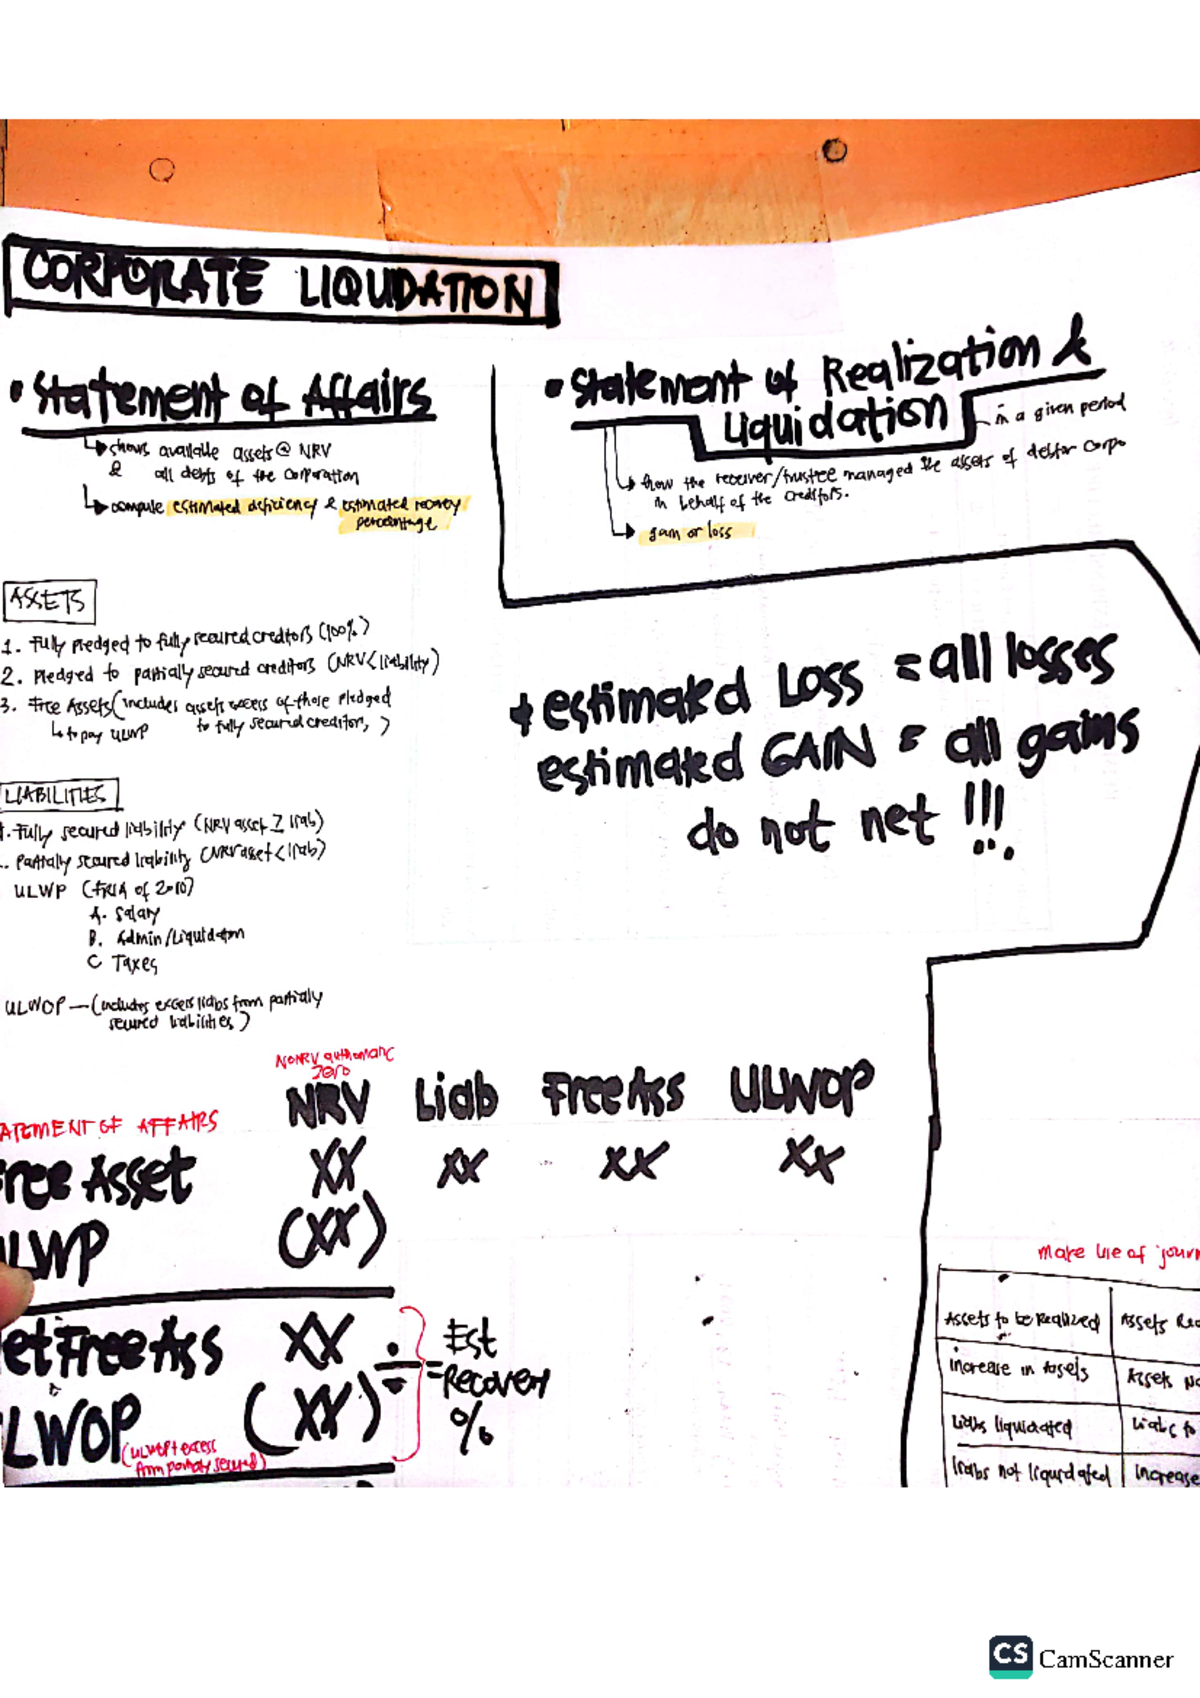 CORPORATE LIQUIDATION
• Statement of Affairs
↳ shows available assets @ NRV
& all debts of the corporation
↳ compute estimated deficiency & estimated recovery
percentage
• Statement of Realization &
Liquidation
in a given period
↳ how the receiver/trustee managed the assets of debtor corpo
in behalf of the creditors.
gain or loss
ASSETS
1. Fully pledged to fully secured creditors (100%)
2. Pledged to partially secured creditors (NRV < liability)
3. Free Assets (includes assets excess of those pledged
↳ to pay ULWP to fully secured creditors,)
+ estimated Loss = all losses
estimated GAIN = all gains
do not net !!!
LIABILITIES
1. Fully secured liability (NRV asset ≥ liab)
Partially secured liability (NRV asset < liab)
ULWP (FRIA of 2010)
A. Salary
B. Admin/Liquidation
C Taxes
ULWOP — (includes excess liabs from partially
secured liabilities)
No NRV
zero
NRV Liab Free Ass ULWOP
ATEMENT OF AFFAIRS
ree Asset XX XX XX XX
LWP (XX)
et Free Ass XX
LWOP (XX)
(ULWOP + excess
from partially secured)
÷ = Est
Recovery
%
make use of journ
Assets to be Realized Assets Rea
increase in Assets Assets No
Liabs liquidated Liabs to
liabs not liquidated increase
CS CamScanner